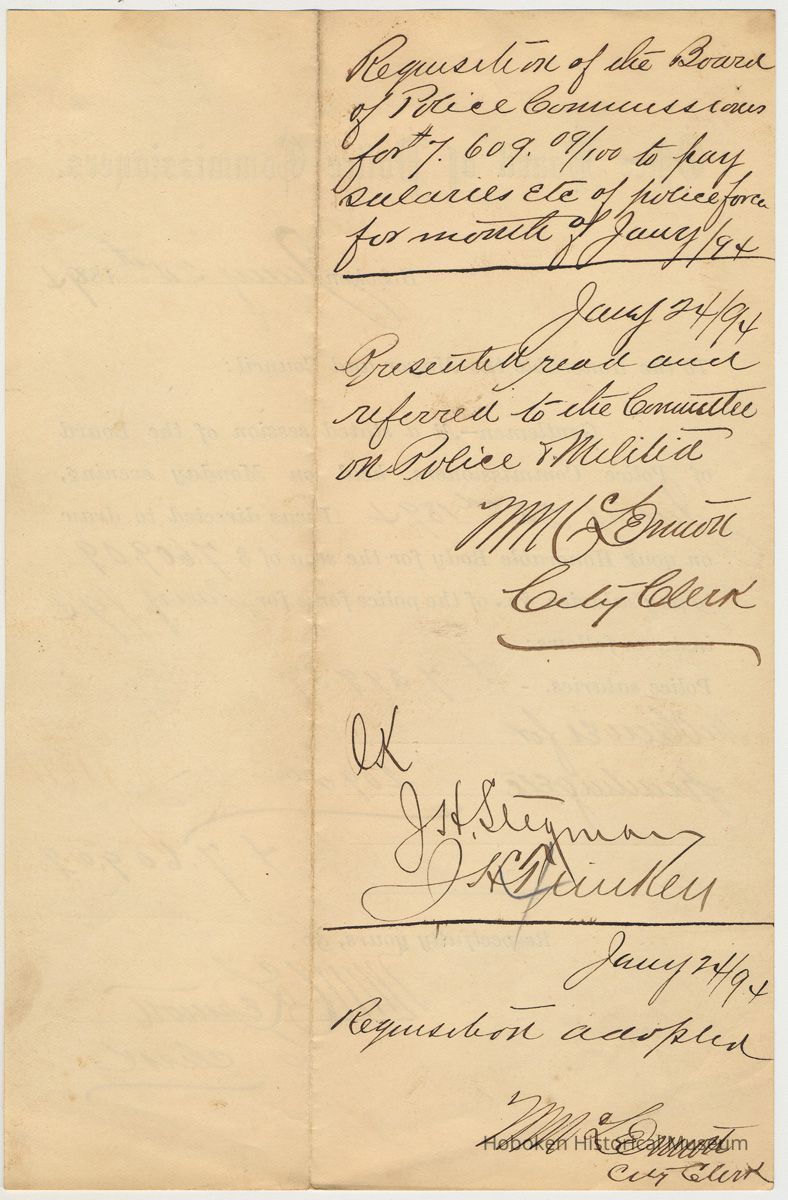 Requisition of the Board
of Police Commissioners
for $7.609.09/100 to pay
salaries etc of police force
for month of Jany/94
Jany 24/94
Presented read and
referred to the Committee
on Police & Militia
City Clerk
OK
J H. Stegman
Jany 24/94
Requisition adopted
City Clerk
Hoboken Historical Museum